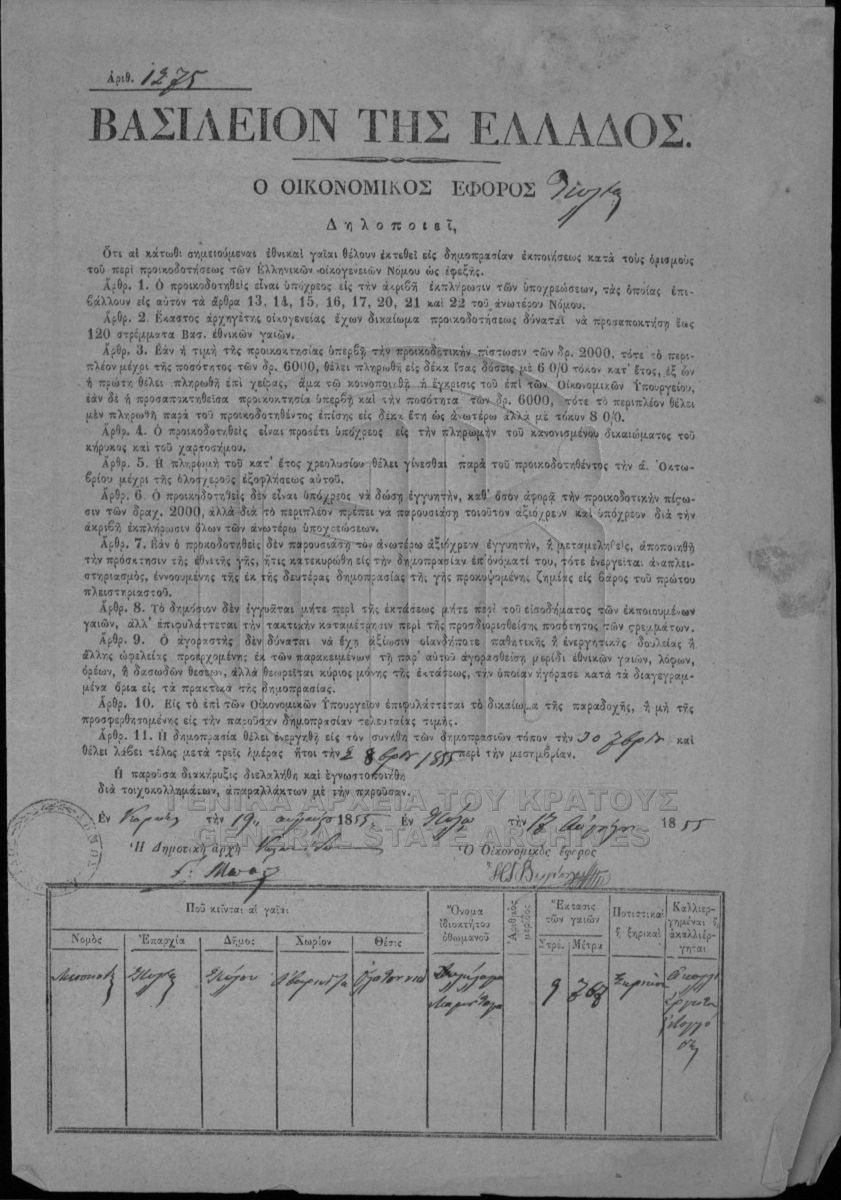 Ἀριθ. 1275
ΒΑΣΙΛΕΙΟΝ ΤΗΣ ΕΛΛΑΔΟΣ.
Ο ΟΙΚΟΝΟΜΙΚΟΣ ΕΦΟΡΟΣ
Δηλοποιεῖ,
Ὅτι αἱ κάτωθι σημειούμεναι ἐθνικαὶ γαῖαι θέλουν ἐκτεθεῖ εἰς δημοπρασίαν ἐκποιήσεως κατὰ τοὺς ὁρισμοὺς
τοῦ περὶ προικοδοτήσεως τῶν Ἑλληνικῶν οἰκογενειῶν Νόμου ὡς ἐφεξῆς.
Ἄρθρ. 1. Ὁ προικοδοτηθεὶς εἶναι ὑπόχρεος εἰς τὴν ἀκριβῆ ἐκπλήρωσιν τῶν ὑποχρεώσεων, τὰς ὁποίας ἐπι-
βάλλουν εἰς αὐτὸν τὰ ἄρθρα 13, 14, 15, 16, 17, 20, 21 καὶ 22 τοῦ ἀνωτέρου Νόμου.
Ἄρθρ. 2. Ἕκαστος ἀρχηγέτης οἰκογενείας ἔχων δικαίωμα προικοδοτήσεως δύναται νὰ προσαποκτήσῃ ἕως
120 στρέμματα Βασ. ἐθνικῶν γαιῶν.
Ἄρθρ. 3. Ἐὰν ἡ τιμὴ τῆς προικοκτησίας ὑπερβῇ τὴν προικοδοτικὴν πίστωσιν τῶν δρ. 2000, τότε τὸ περι-
πλέον μέχρι τῆς ποσότητος τῶν δρ. 6000, θέλει πληρωθῆ εἰς δέκα ἴσας δόσεις μὲ 6 0/0 τόκον κατ' ἔτος, ἐξ ὧν
ἡ πρώτη θέλει πληρωθῆ ἐπὶ χεῖρας, ἅμα τῷ κοινοποιηθῇ ἡ ἔγκρισις τοῦ ἐπὶ τῶν Οἰκονομικῶν Ὑπουργείου,
ἐὰν δὲ ἡ προσαποκτηθεῖσα προικοκτησία ὑπερβῇ καὶ τὴν ποσότητα τῶν δρ. 6000, τότε τὸ περιπλέον θέλει
μὲν πληρωθῆ παρὰ τοῦ προικοδοτηθέντος ἐπίσης εἰς δέκα ἔτη ὡς ἀνωτέρω ἀλλὰ μὲ τόκον 8 0/0.
Ἄρθρ. 4. Ὁ προικοδοτηθεὶς εἶναι προσέτι ὑπόχρεος εἰς τὴν πληρωμὴν τοῦ κανονισμένου δικαιώματος τοῦ
κήρυκος καὶ τοῦ χαρτοσήμου.
Ἄρθρ. 5. Ἡ πληρωμὴ τοῦ κατ' ἔτος χρεολυσίου θέλει γίνεσθαι παρὰ τοῦ προικοδοτηθέντος τὴν ά. Ὀκτω-
βρίου μέχρι τῆς ὁλοσχεροῦς ἐξοφλήσεως αὐτοῦ.
Ἄρθρ. 6. Ὁ προικοδοτηθεὶς δὲν εἶναι ὑπόχρεος νὰ δώσῃ ἐγγυητήν, καθ' ὅσον ἀφορᾷ τὴν προικοδοτικὴν πίστω-
σιν τῶν δραχ. 2000, ἀλλὰ διὰ τὸ περιπλέον πρέπει νὰ παρουσιάσῃ τοιοῦτον ἀξιόχρεων καὶ ὑπόχρεον διὰ τὴν
ἀκριβῆ ἐκπλήρωσιν ὅλων τῶν ἀνωτέρω ὑποχρεώσεων.
Ἄρθρ. 7. Ἐὰν ὁ προκοδοτηθεὶς δὲν παρουσιάσῃ τὸν ἀνωτέρω ἀξιόχρεων ἐγγυητήν, ἢ μεταμεληθεὶς, ἀποποιηθῇ
τὴν πρόσκτησιν τῆς ἐθνιτῆς γῆς, ἥτις κατεκυρώθη εἰς τὴν δημοπρασίαν ἐπ' ὀνόματί του, τότε ἐνεργεῖται ἀναπλει-
στηριασμὸς, ἐννοουμένης τῆς ἐκ τῆς δευτέρας δημοπρασίας τῆς γῆς προκυψομένης ζημίας εἰς βάρος τοῦ πρώτου
πλειστηριαστοῦ.
Ἄρθρ. 8. Τὸ δημόσιον δὲν ἐγγυᾶται μήτε περὶ τῆς ἐκτάσεως μήτε περὶ τοῦ εἰσοδήματος τῶν ἐκποιουμένων
γαιῶν, ἀλλ' ἐπιφυλάττεται τὴν τακτικὴν καταμέτρησιν περὶ τῆς προσδιορισθείσης ποσότητος τῶν στρεμμάτων.
Ἄρθρ. 9. Ὁ ἀγοραστὴς δὲν δύναται νὰ ἔχῃ ἀξίωσιν οἱανδήποτε παθητικῆς ἢ ἐνεργητικῆς δουλείας ἢ
ἄλλης ὠφελείας προερχομένης ἐκ τῶν παρακειμένων τῇ παρ' αὐτοῦ ἀγορασθείσῃ μερίδι ἐθνικῶν γαιῶν, λόφων,
ὀρέων, ἢ δασωδῶν θέσεων, ἀλλὰ θεωρεῖται κύριος μόνης τῆς ἐκτάσεως, τὴν ὁποίαν ἠγόρασε κατὰ τὰ διαγεγραμ-
μένα ὅρια εἰς τὰ πρακτικὰ τῆς δημοπρασίας.
Ἄρθρ. 10. Εἰς τὸ ἐπὶ τῶν Οἰκονομικῶν Ὑπουργεῖον ἐπιφυλάττεται τὸ δικαίωμα τῆς παραδοχῆς, ἢ μὴ τῆς
προσφερθησομένης εἰς τὴν παροῦσαν δημοπρασίαν τελευταίας τιμῆς.
Ἄρθρ. 11. Ἡ δημοπρασία θέλει ἐνεργηθῆ εἰς τὸν συνήθη τῶν δημοπρασιῶν τόπον τὴν 30 7βρίου καὶ
θέλει λάβει τέλος μετὰ τρεῖς ἡμέρας ἤτοι τὴν 2 8βρίου 1855 περὶ τὴν μεσημβρίαν.
Ἡ παροῦσα διακήρυξις διελαλήθη καὶ ἐγνωστοποιήθη
διὰ τοιχοκολλημάτων, ἀπαραλλάκτων μὲ τὴν παροῦσαν.
ΓΕΝΙΚΑ ΑΡΧΕΙΑ ΤΟΥ ΚΡΑΤΟΥΣ
GENERAL STATE ARCHIVES
Ἐν τὴν 19 αὐγούστου 1855 Ἐν τὴν 17 Αὐγούστου 1855
Ἡ Δημοτικὴ ἀρχὴ Ὁ Οἰκονομικὸς ἔφορος
Ποῦ κεῖνται αἱ γαῖαι
Ὄνομα ἰδιοκτήτου ὀθωμανοῦ
Ἀριθμὸς μερίδος
Ἔκτασις τῶν γαιῶν
Ποτιστικαὶ ἢ ξηρικαὶ
Καλλιερ- γημέναι ἢ ἀκαλλιέργηται
Νομὸς Ἐπαρχία Δῆμος Χωρίον Θέσις Στρέ. Μέτρα
9 767